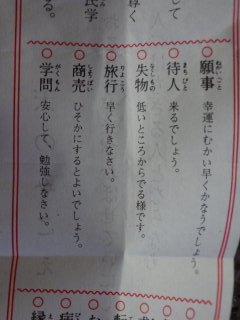 願事 幸運にむかい早くかなうでしょう。
待人 来るでしょう。
失物 低いところからでる様です。
旅行 早く行きなさい。
商売 ひそかにするとよいでしょう。
学問 安心して、勉強しなさい。